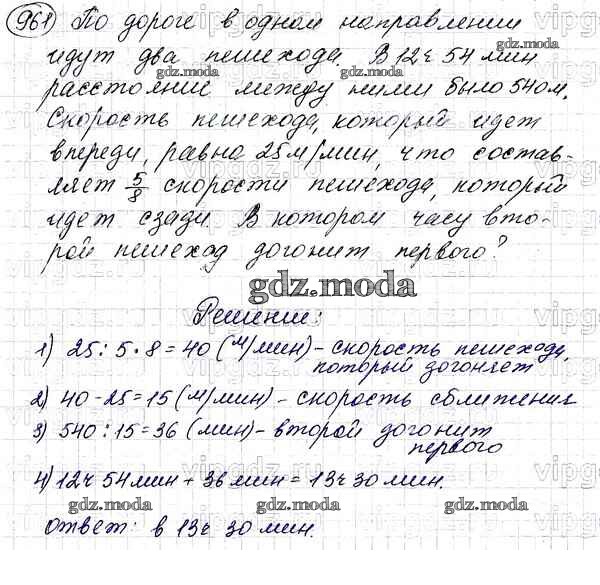 961 По дороге в одном направлении
идут два пешехода. В 12 ч 54 мин
расстояние между ними было 540 м.
Скорость пешехода, который идет
впереди, равна 25 м/мин, что состав-
ляет 5/8 скорости пешехода, который
идет сзади. В котором часу вто-
рой пешеход догонит первого?
gdz.moda
Решение:
1) 25 : 5 · 8 = 40 (м/мин) - скорость пешехода,
который догоняет
2) 40 - 25 = 15 (м/мин) - скорость сближения
3) 540 : 15 = 36 (мин) - второй догонит
первого
4) 12 ч 54 мин + 36 мин = 13 ч 30 мин.
Ответ: в 13 ч 30 мин.